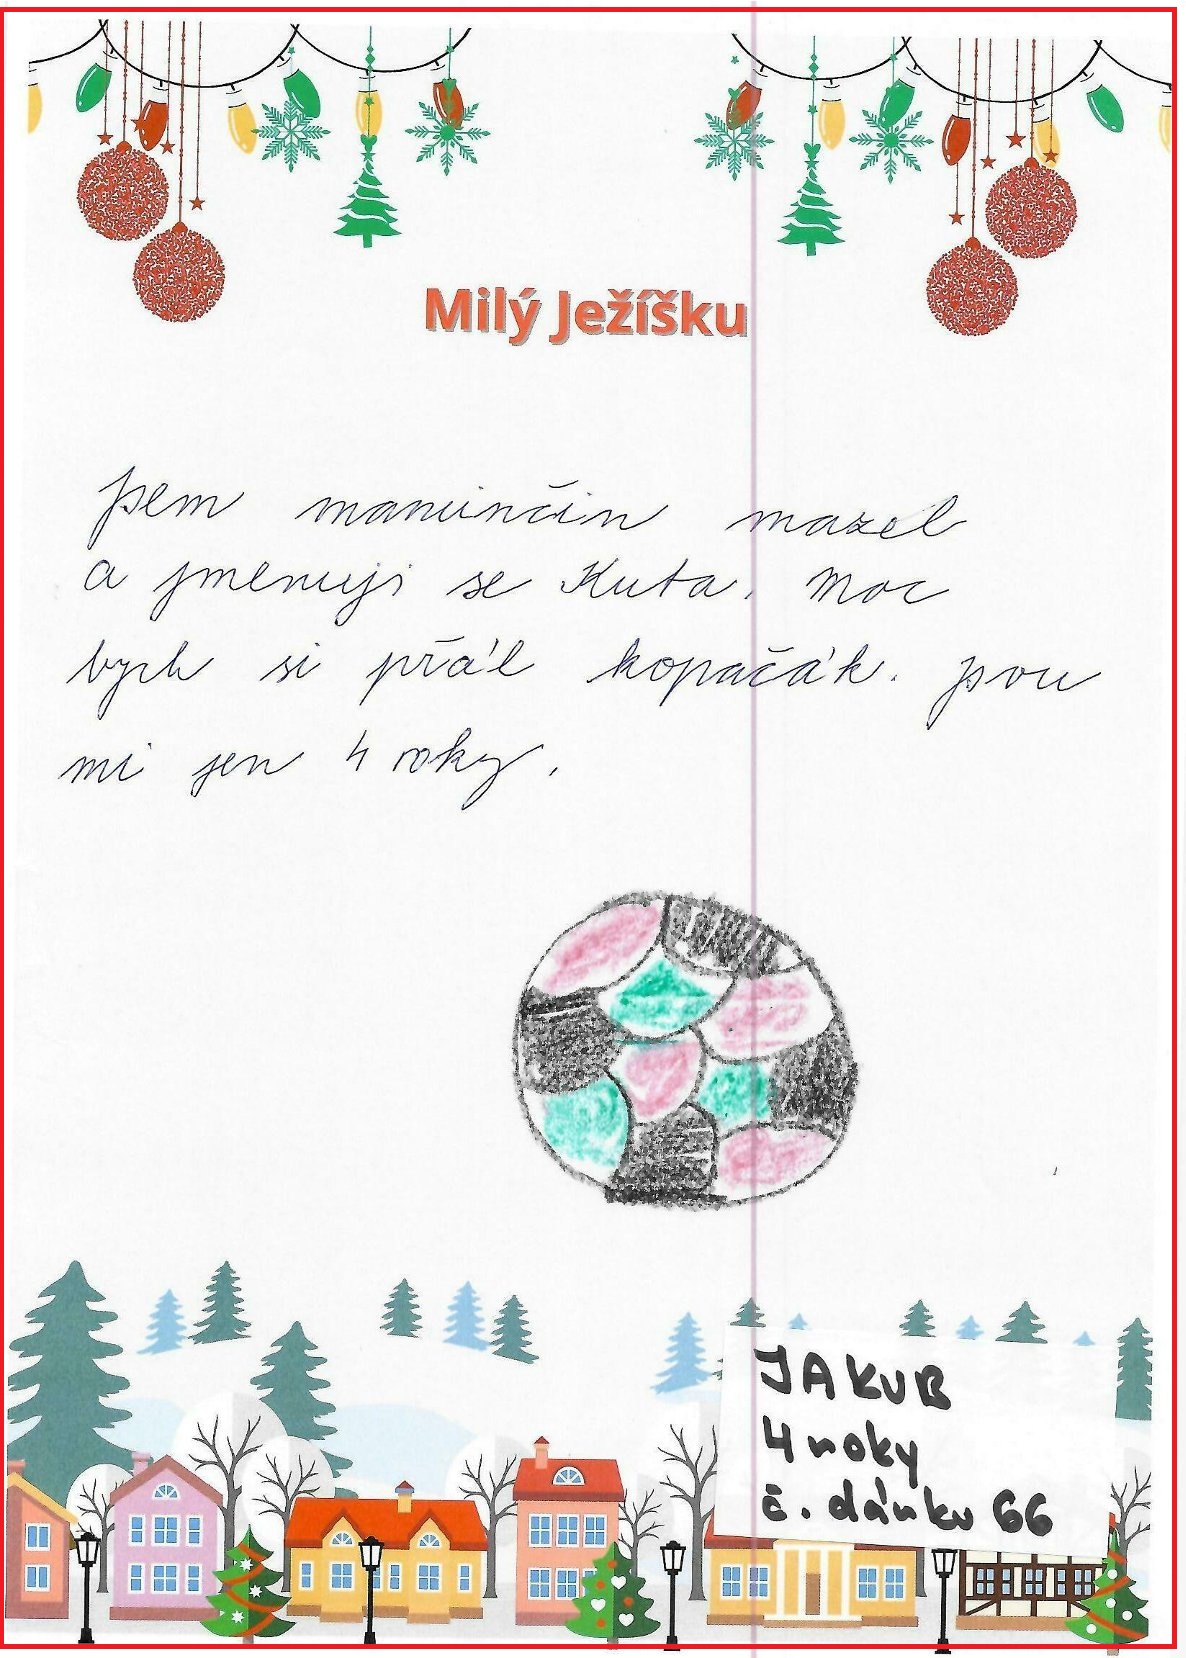 Milý Ježíšku
Jsem maminčin mazel
a jmenuji se Kuba. Moc
bych si přál kopačák. Jsou
mi jen 4 roky.
JAKUB
4 roky
č. dárku 66